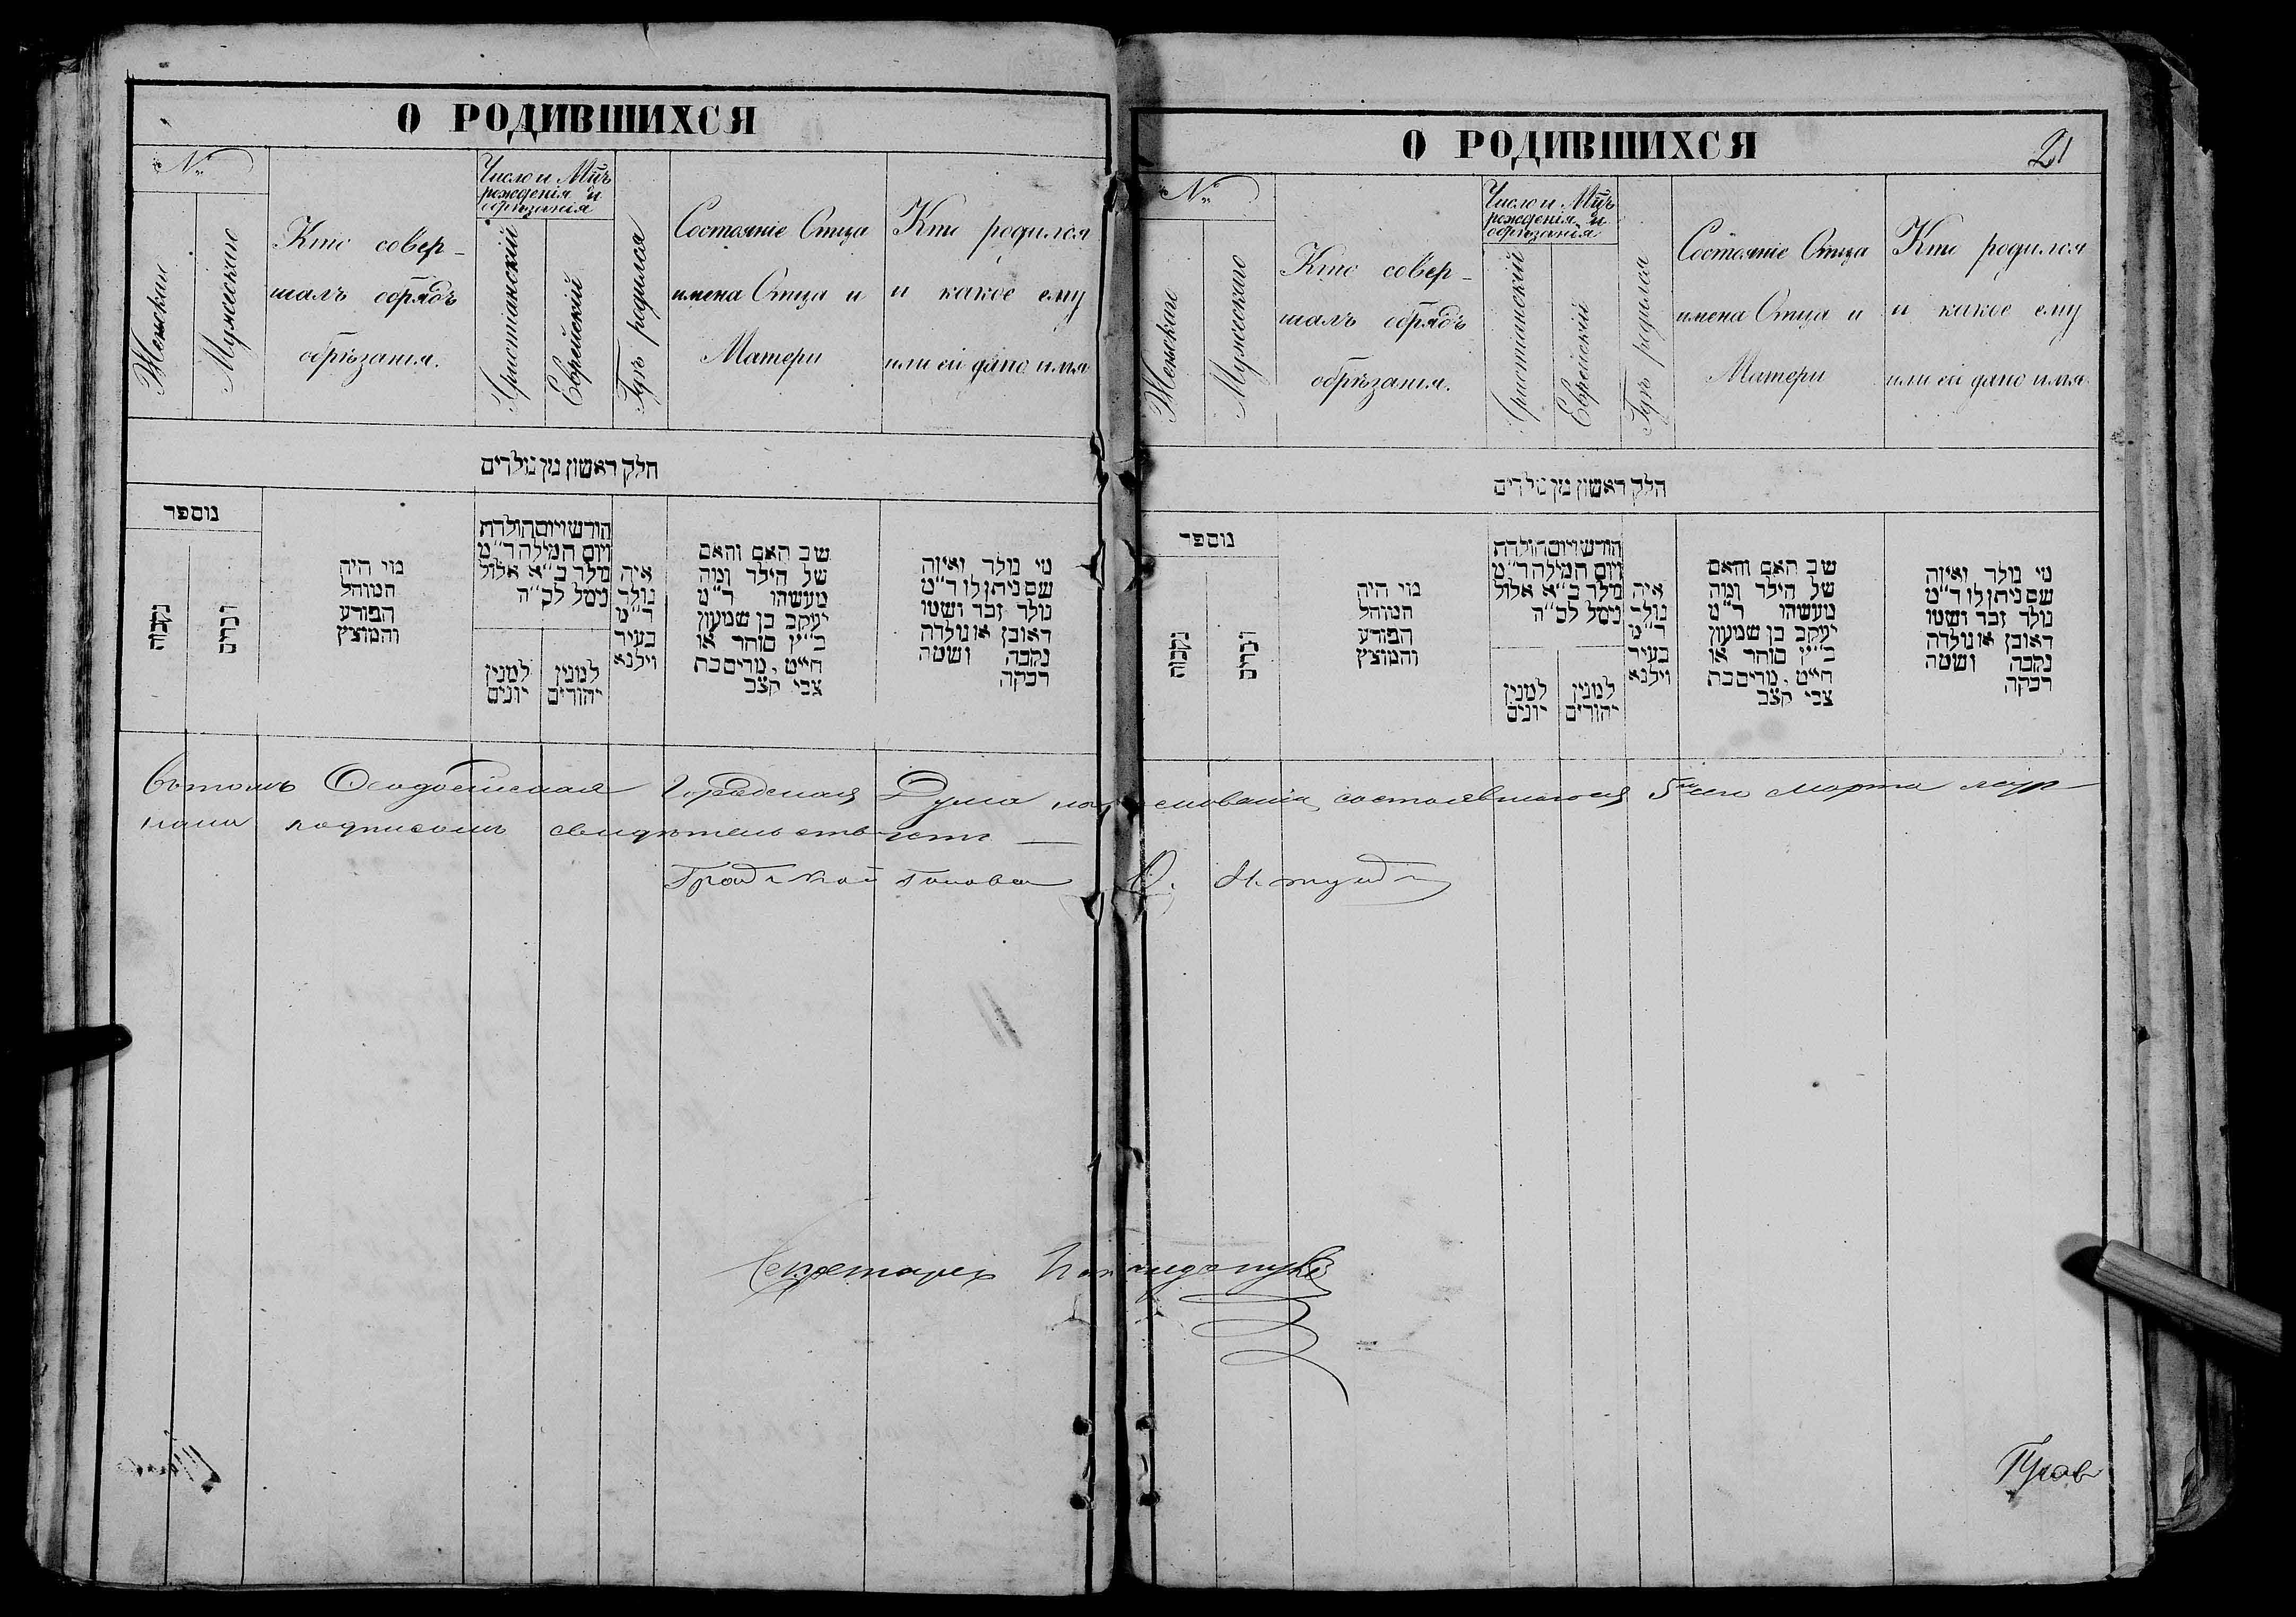 О РОДИВШИХСЯ
№
Женскаго
Мужескаго
Кто совер-
шалъ обрядъ
обрѣзанія.
Число и Мцъ
рожденія и
обрѣзанія
Христіанскій
Еврейскій
Гдѣ родился
Состояніе Отца
имена Отца и
Матери
Кто родился
и какое ему
или ей дано имя
חלק ראשון מן נולדים
נוספר
נקבות
זכרים
מי היה
המוהל
הפורע
והמוצץ
חודש ויום הולדת
ויום המילה ד״מ
נולד ב״א אלול
ניסל לס״ה
למנין
יונים
למנין
יהודים
איה
נולד
ד״מ
בעיר
וילנא
שב האם והאם
של הילד ומה
מעשהו ד״מ
יעקב בן שמעון
כ״ץ סוחר או
חייט. מרים בת
צבי קצב
מי נולד ואיזה
שם ניתן לו ד״מ
נולד זכר ושמו
ראובן או נולדה
נקבה ושמה
רבקה
О РОДИВШИХСЯ
21
№
Женскаго
Мужескаго
Кто совер-
шалъ обрядъ
обрѣзанія.
Число и Мцъ
рожденія и
обрѣзанія
Христіанскій
Еврейскій
Гдѣ родился
Состояніе Отца
имена Отца и
Матери
Кто родился
и какое ему
или ей дано имя
חלק ראשון מן נולדים
נוספר
נקבות
זכרים
מי היה
המוהל
הפורע
והמוצץ
חודש ויום הולדת
ויום המילה ד״מ
נולד ב״א אלול
ניסל לס״ה
למנין
יונים
למנין
יהודים
איה
נולד
ד״מ
בעיר
וילנא
שב האם והאם
של הילד ומה
מעשהו ד״מ
יעקב בן שמעון
כ״ץ סוחר או
חייט. מרים בת
צבי קצב
מי נולד ואיזה
שם ניתן לו ד״מ
נולד זכר ושמו
ראובן או נולדה
נקבה ושמה
רבקה
въ томъ Ѳеодосійская Городская Дума на основаніи состоявшагося 5 марта жур-
нала подписомъ свидѣтельствуетъ —
Градской Голова
Секретарь